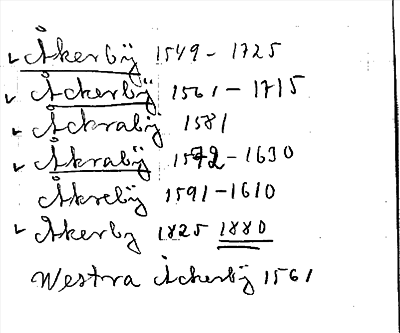 ✓ Åkerbÿ 1549 - 1725
✓ Åckerbÿ 1561 - 1715
✓ Ackrabÿ 1581
✓ Åkrabÿ 1572 - 1630
Åkrebÿ 1591 - 1610
✓ Åkerby 1825 1880
Westra Åckerbÿ 1561